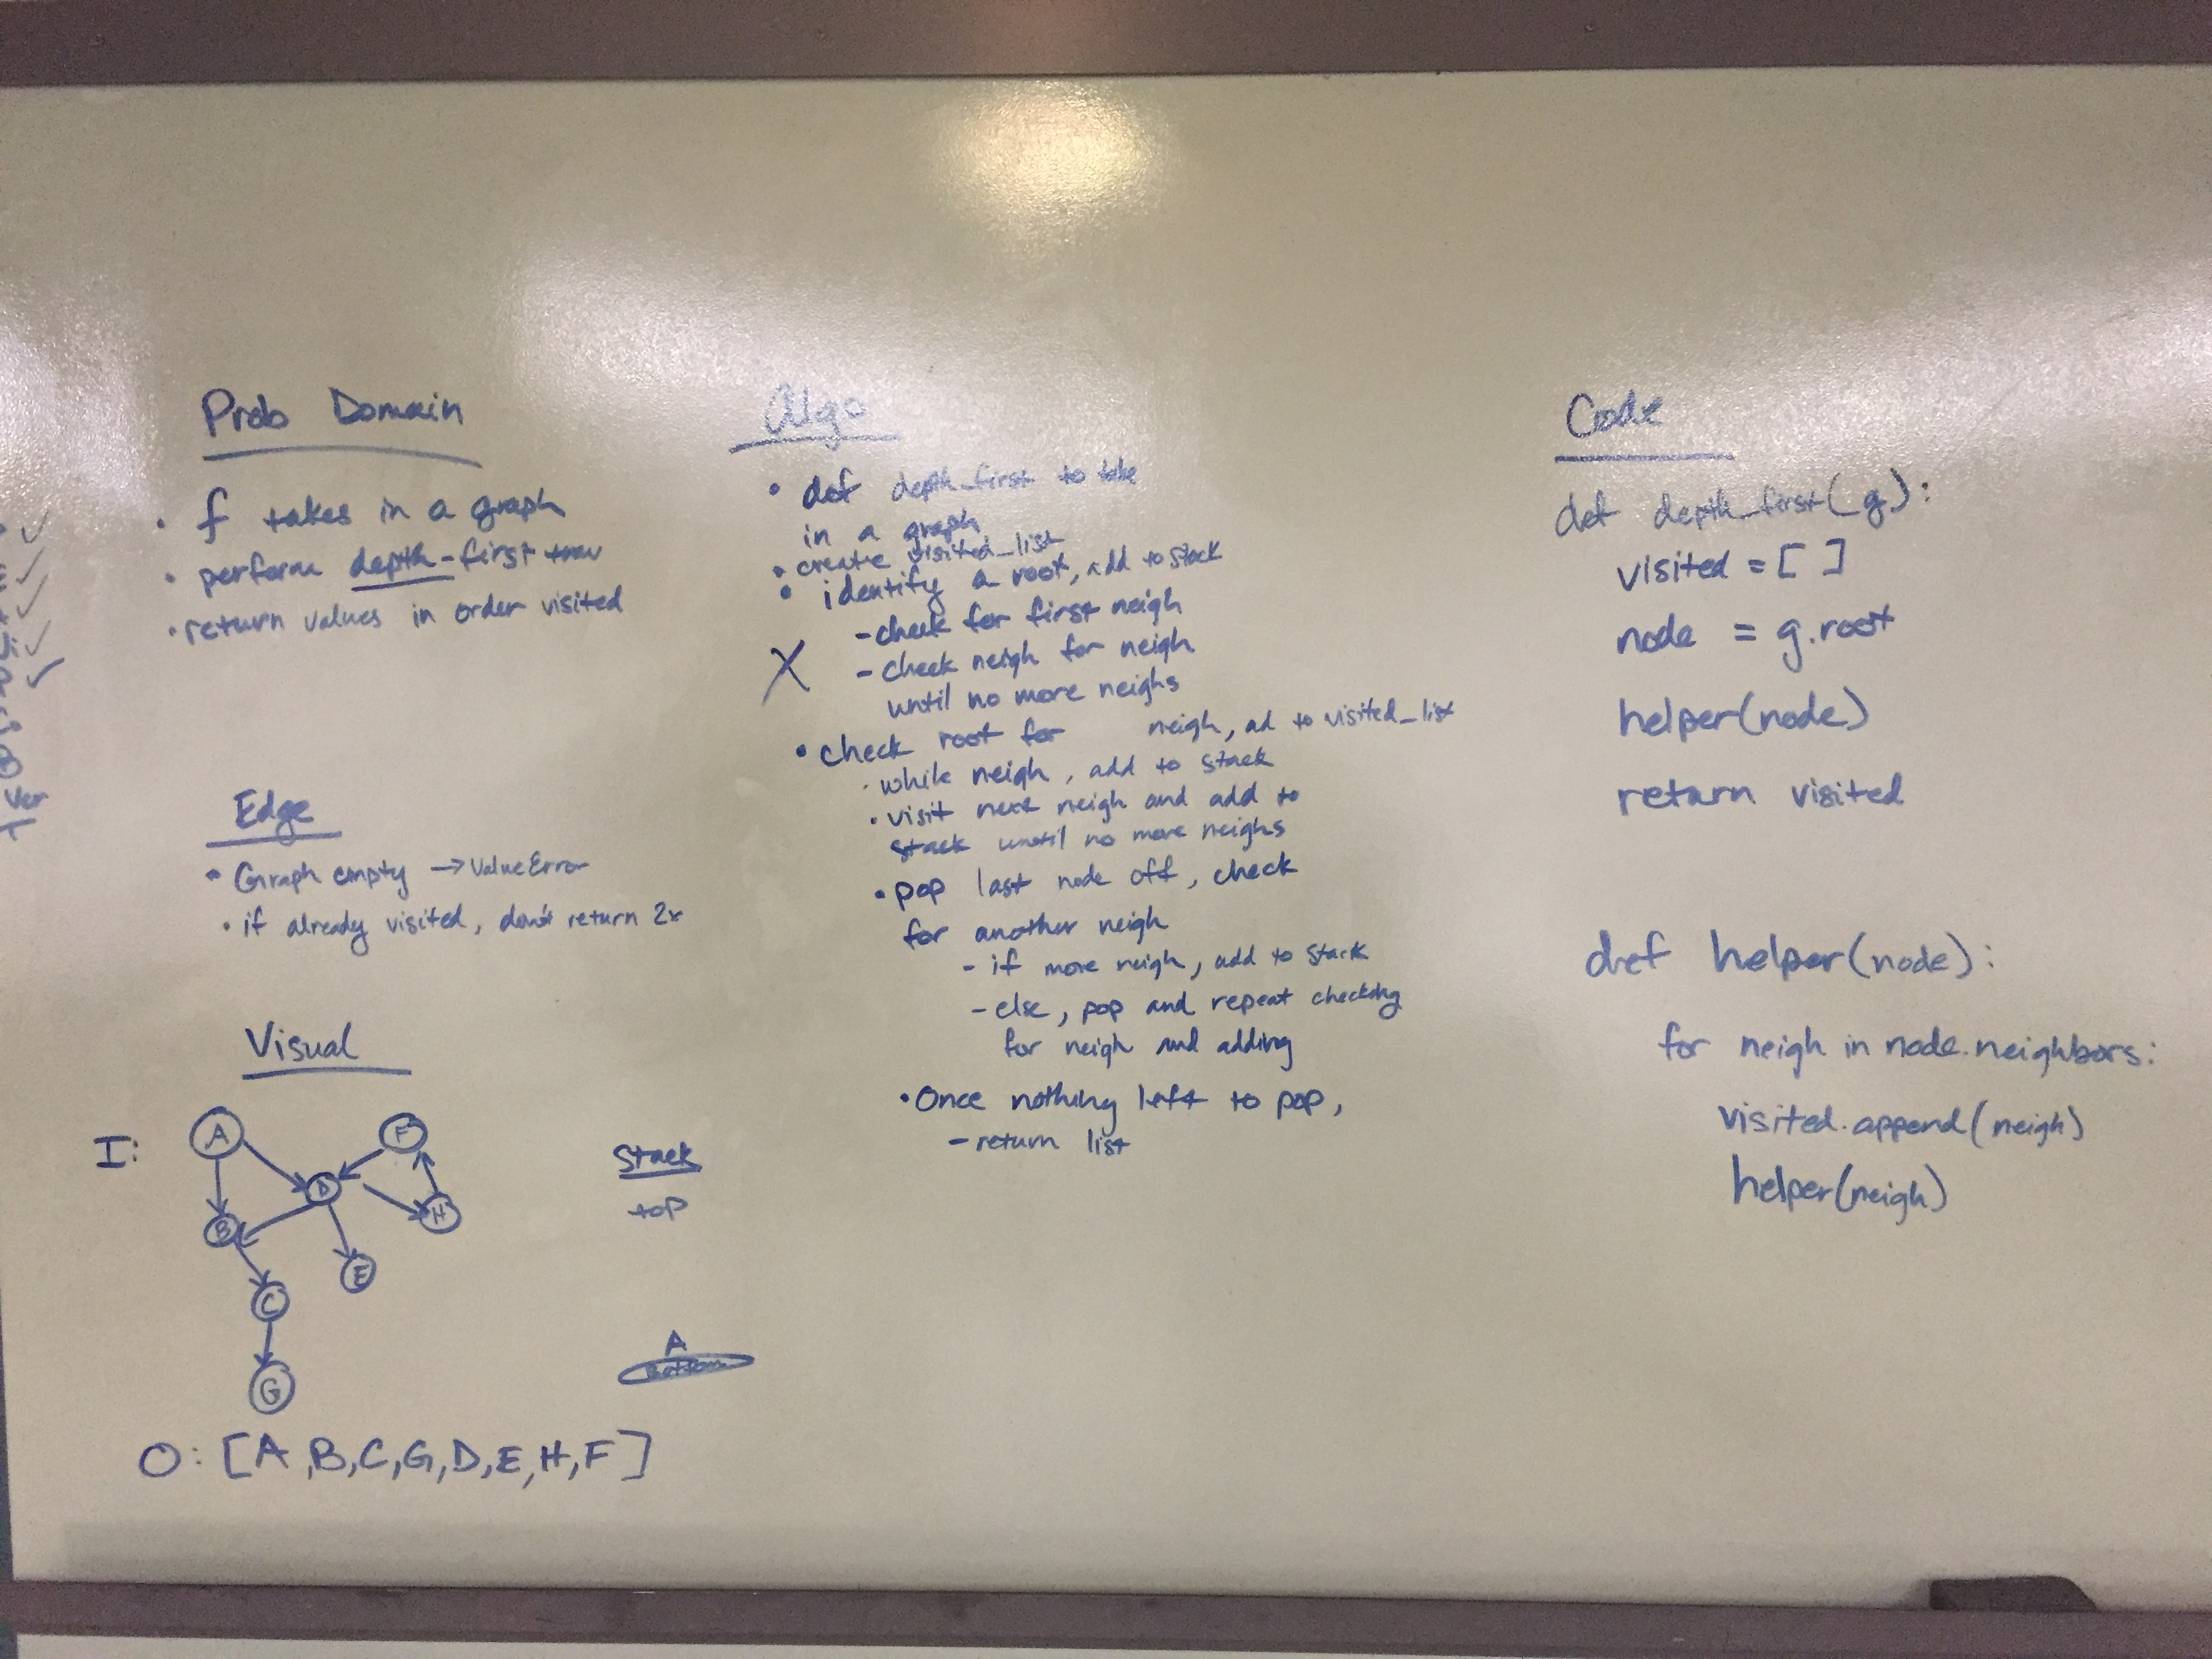 Prob Domain
• f takes in a graph
• perform depth-first trav
• return values in order visited
Edge
• Graph empty → ValueError
• if already visited, don't return 2x
Visual
I:
A
F
D
H
B
E
C
G
Stack
top
A
Bottom
O: [A,B,C,G,D,E,H,F]
Algo
• def depth_first to take
in a graph
• create visited_list
• identify a root, add to stack
- check for first neigh
X
- check neigh for neigh
until no more neighs
• check root for neigh, ad to visited_list
• while neigh, add to stack
• visit next neigh and add to
stack until no more neighs
• pop last node off, check
for another neigh
- if more neigh, add to stack
- else, pop and repeat checking
for neigh and adding
• Once nothing left to pop,
- return list
Code
def depth_first(g):
visited = [ ]
node = g.root
helper(node)
return visited
def helper(node):
for neigh in node.neighbors:
visited.append(neigh)
helper(neigh)
Ver